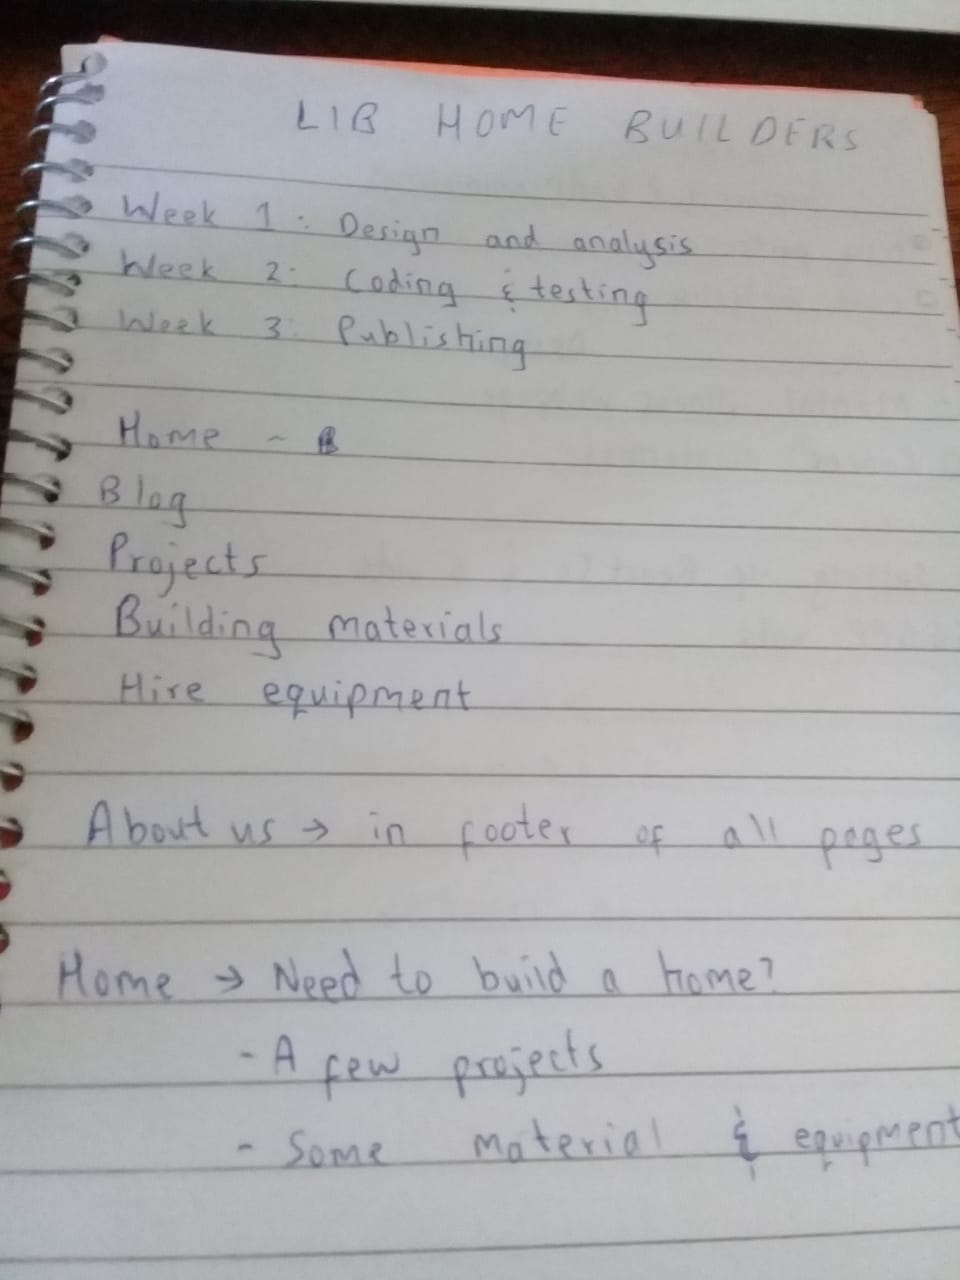 LIB HOME BUILDERS
Week 1: Design and analysis
Week 2: Coding & testing
Week 3: Publishing
Home -
Blog
Projects
Building materials
Hire equipment
About us → in footer of all pages
Home → Need to build a home?
- A few projects
- Some material & equipment